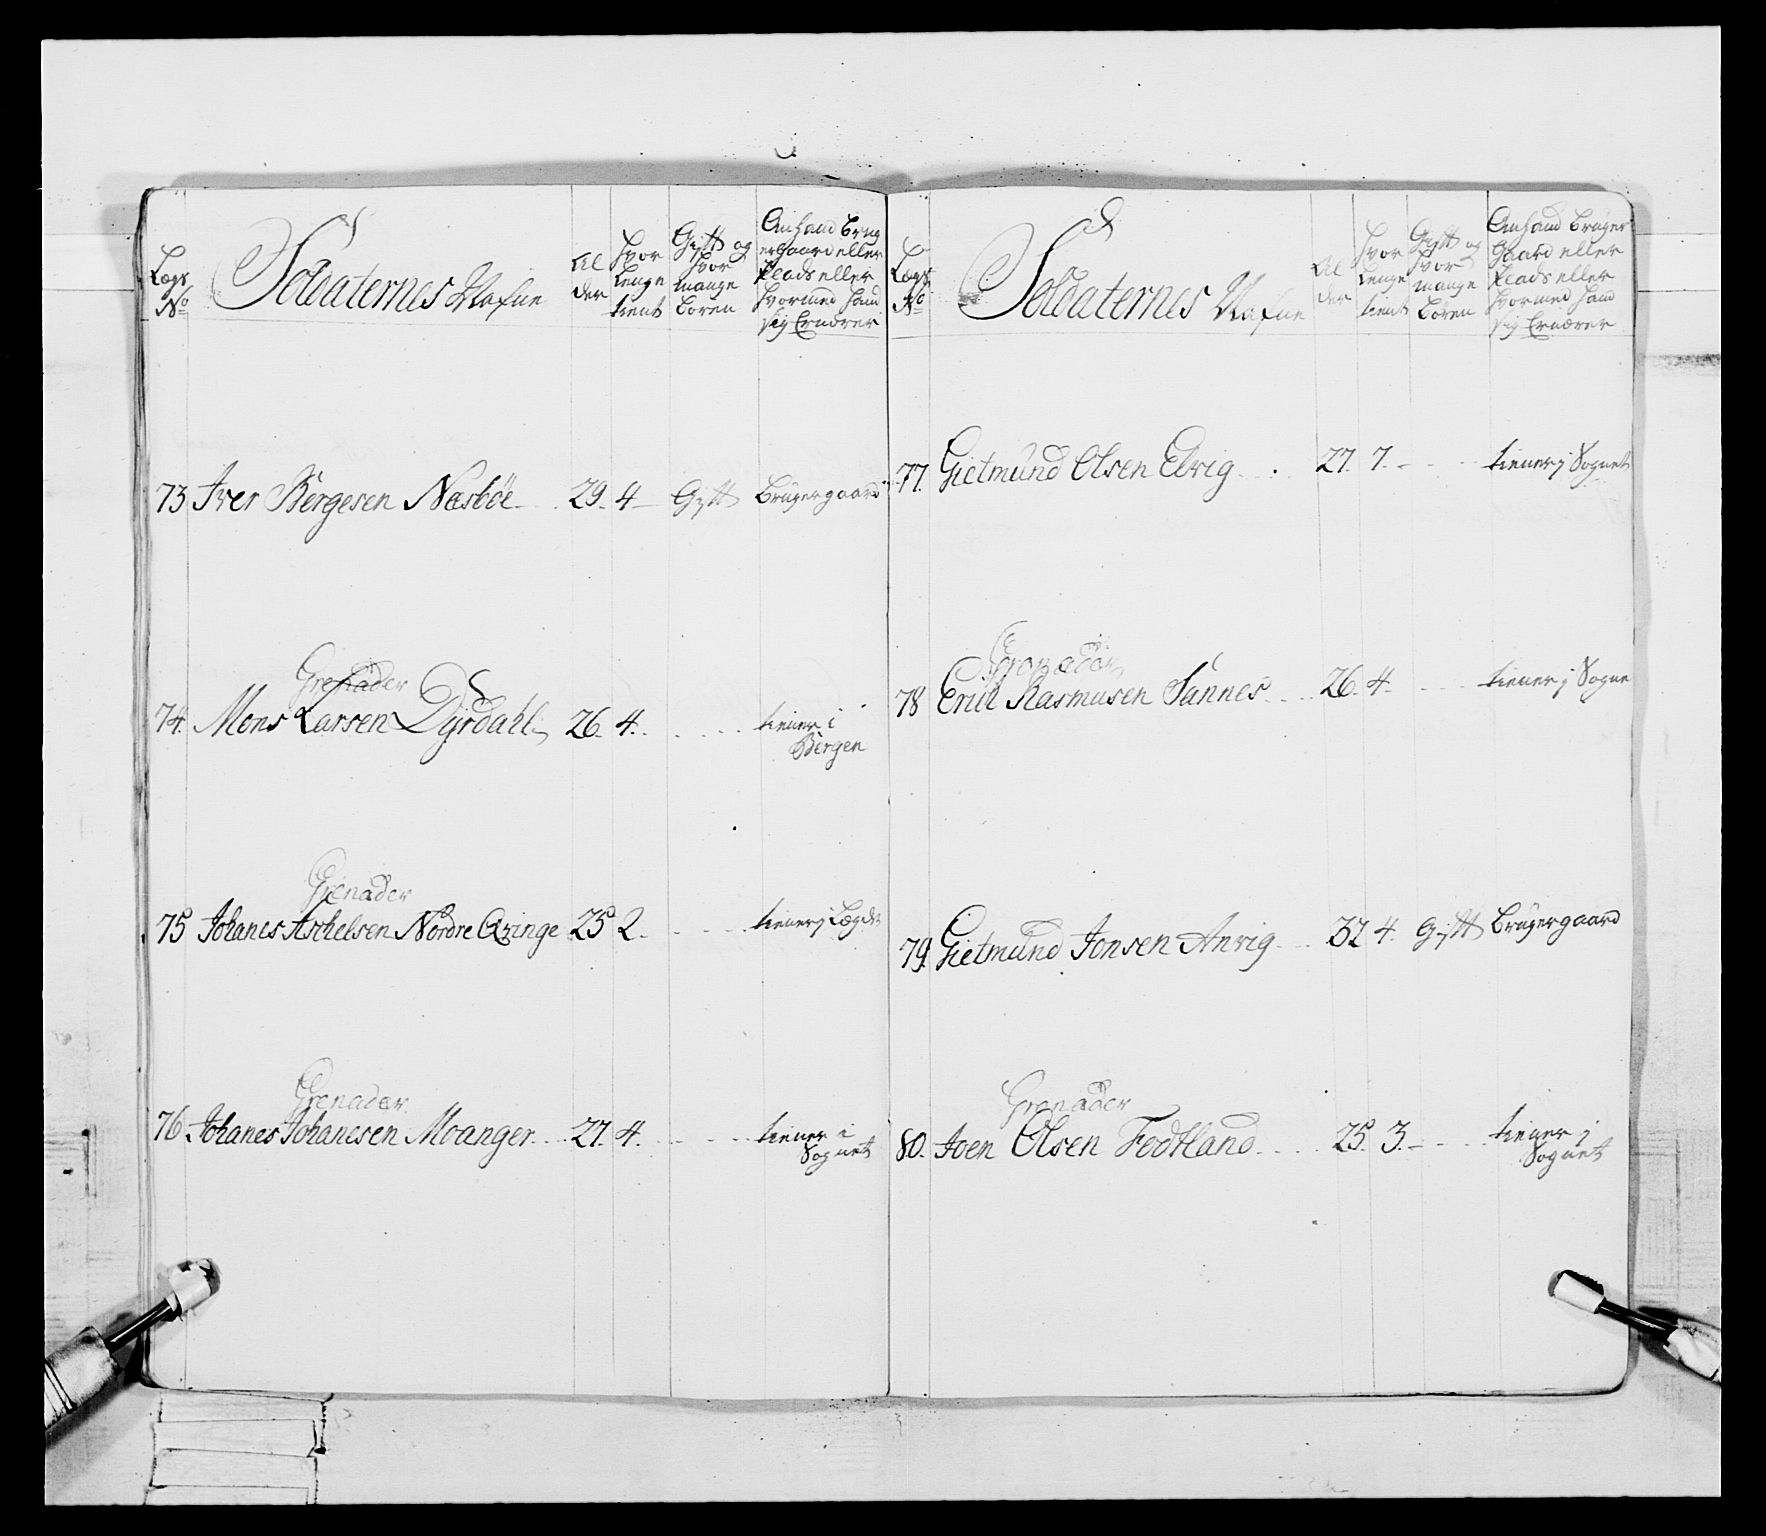 Lægs No
Soldaternes Nafne
Al der
hvor lenge tient
Gift og hvor mange boren
An hand brug er gaard eller Plads eller hvormed hand sig Ernærer
73 Iver Børgesen Næsbøe 29. 4 Gift Bruger gaard
Grenader
74. Mons Larsen Dyrdahl 26. 4. tiener i
Bergen
Grenader
75 Johanes Aschelsen Nordre Qvinge 25 2. tiener j Lægde
Grenader
76. Johanes Johanesen Moanger 27. 4. tiener i
Sognet
Lægs No
Soldaternes Nafne
Al der
hvor lenge tient
Gift og hvor mange boren
An hand bruger Gaard eller Plads eller hvormed hand sig Ernærer
77. Gietmund Olsen Elvig 27. 7. tiener j Sognet
Grenader
78 Erich Rasmusen Sannes 26. 4. tiener j Sogne
79. Gietmund Jonsen Anvig 32 4. Gift Bruger gaard
Grenader
80. Joen Olsen Fedtland 25. 3. tiener j
Sognet